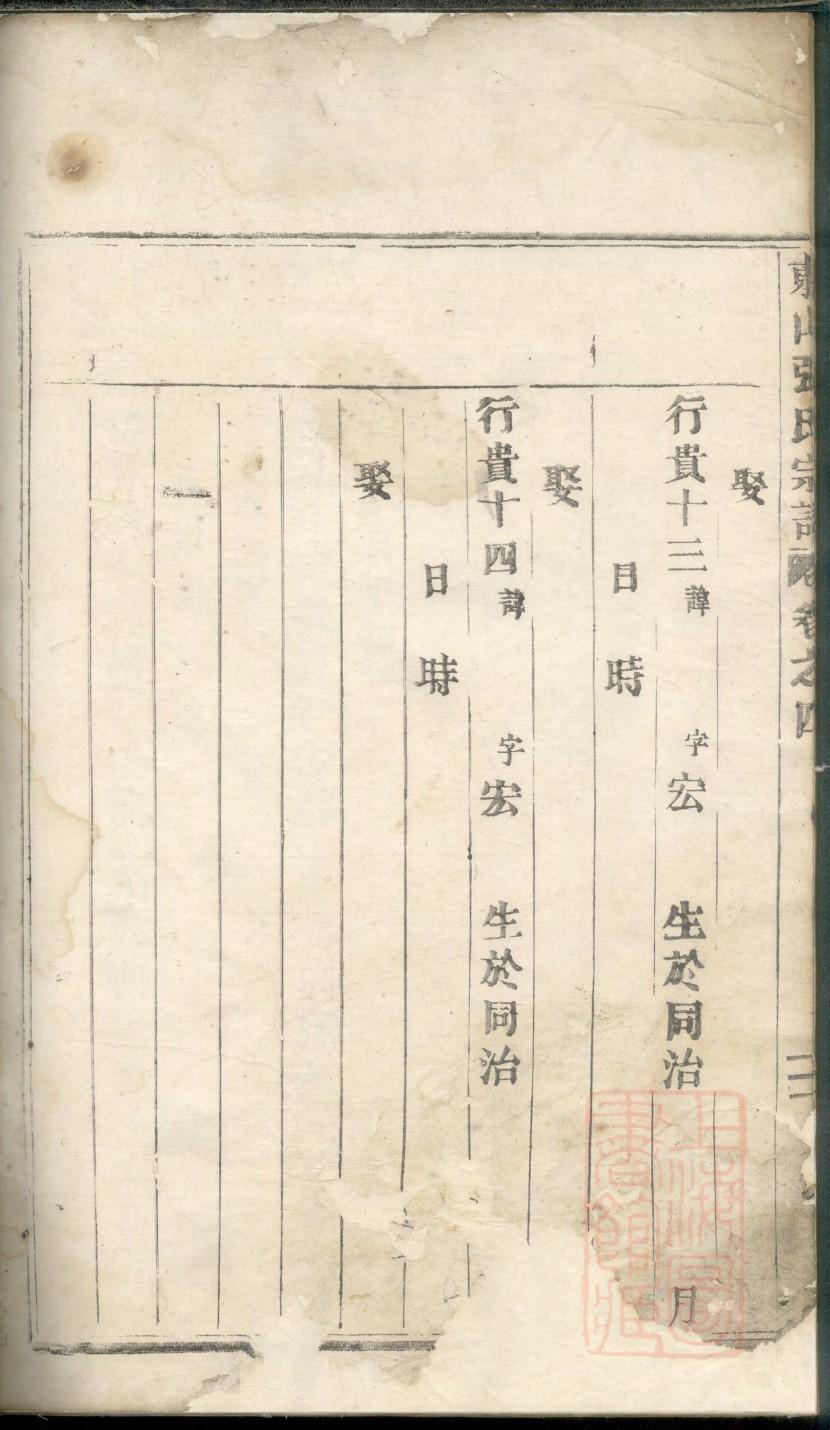 東山張氏宗譜 卷之四
娶
行貴十三 諱 字宏 生於同治 月
日 時
娶
行貴十四 諱 字宏 生於同治
日 時
娶
一
上海圖
書館藏